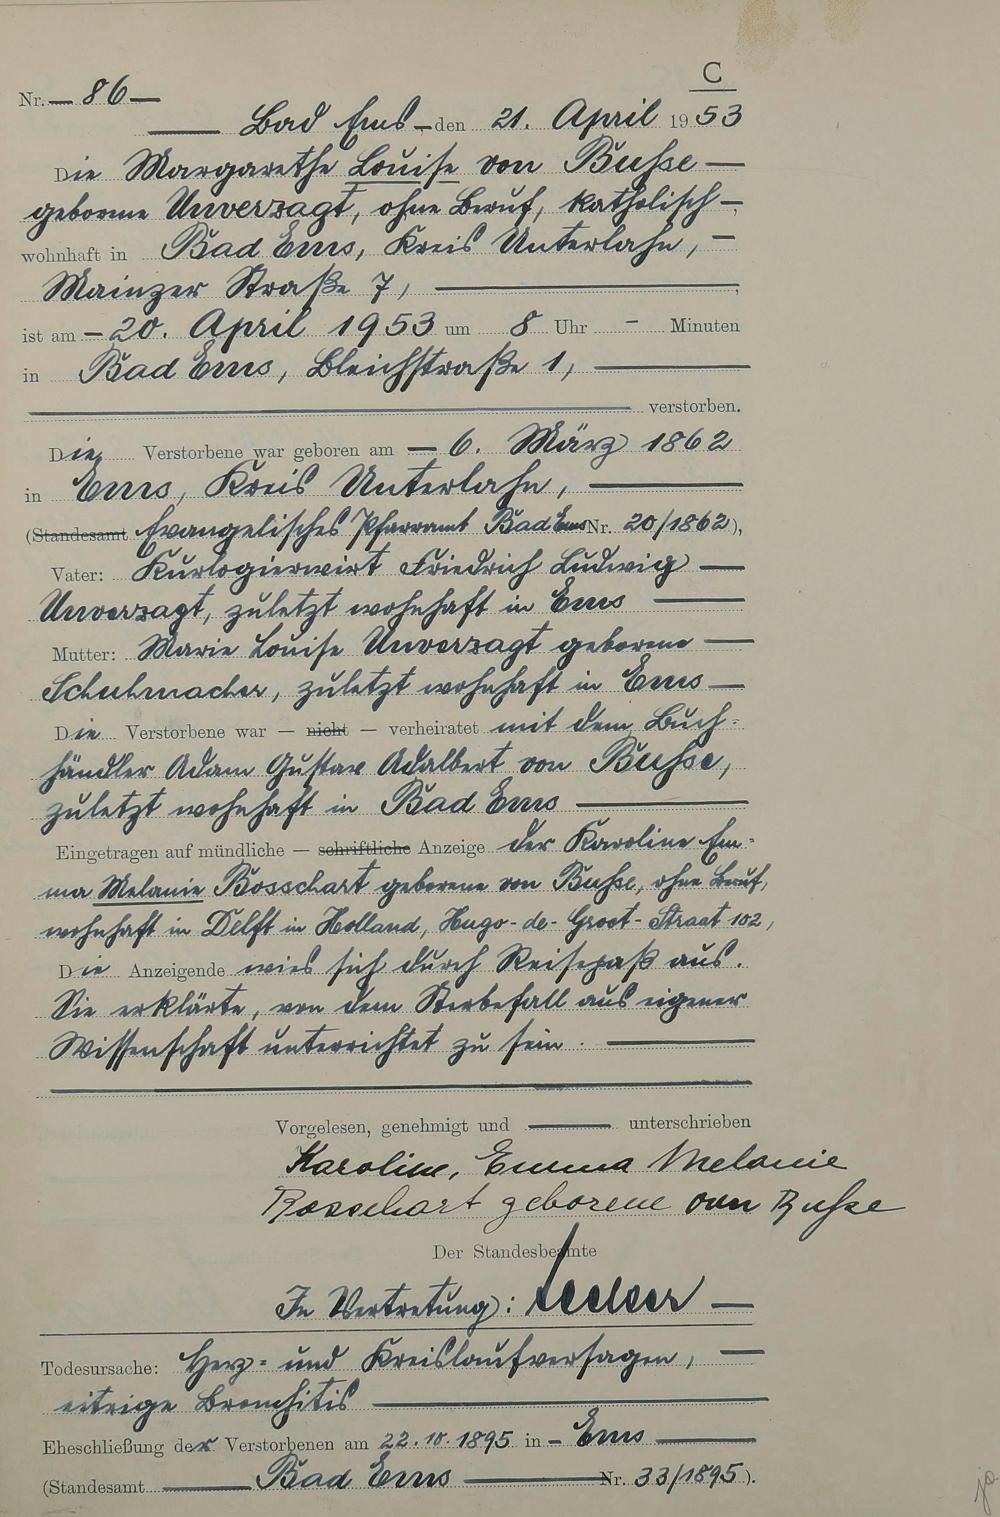 C
Nr. — 86 —
Bad Ems — den 21. April 1953
Die Margarethe Louise von Buhse —
geborene Unverzagt, ohne Beruf, katholisch —,
wohnhaft in Bad Ems, Kreis Unterlahn, —
Mainzer Straße 7, —,
ist am — 20. April 1953 um 8 Uhr – Minuten
in Bad Ems, Bleichstraße 1, —
— verstorben.
Die Verstorbene war geboren am — 6. März 1862
in Ems, Kreis Unterlahn, —
(Standesamt Evangelisches Pfarramt Bad Ems Nr. 20/1862),
Vater: Kurlogierwirt Friedrich Ludwig —
Unverzagt, zuletzt wohnhaft in Ems —
Mutter: Marie Louise Unverzagt geborene —
Schuhmacher, zuletzt wohnhaft in Ems —
Die Verstorbene war — nicht — verheiratet mit dem Buch=
händler Adam Gustav Adalbert von Buhse,
zuletzt wohnhaft in Bad Ems —
Eingetragen auf mündliche — schriftliche Anzeige der Karoline Em=
ma Melanie Bosschart geborene von Buhse, ohne Beruf,
wohnhaft in Delft in Holland, Hugo-de-Groot-Straat 102,
Die Anzeigende wies sich durch Reisepaß aus.
Sie erklärte, von dem Sterbefall aus eigener
Wissenschaft unterrichtet zu sein. —
Vorgelesen, genehmigt und — unterschrieben
Karoline, Emma Melanie
Bosschart geborene von Buhse
Der Standesbeamte
In Vertretung: —
Todesursache: Herz= und Kreislaufversagen, —
eitrige Bronchitis —
Eheschließung der Verstorbenen am 22.10.1895 in — Ems —
(Standesamt — Bad Ems — Nr. 33/1895).